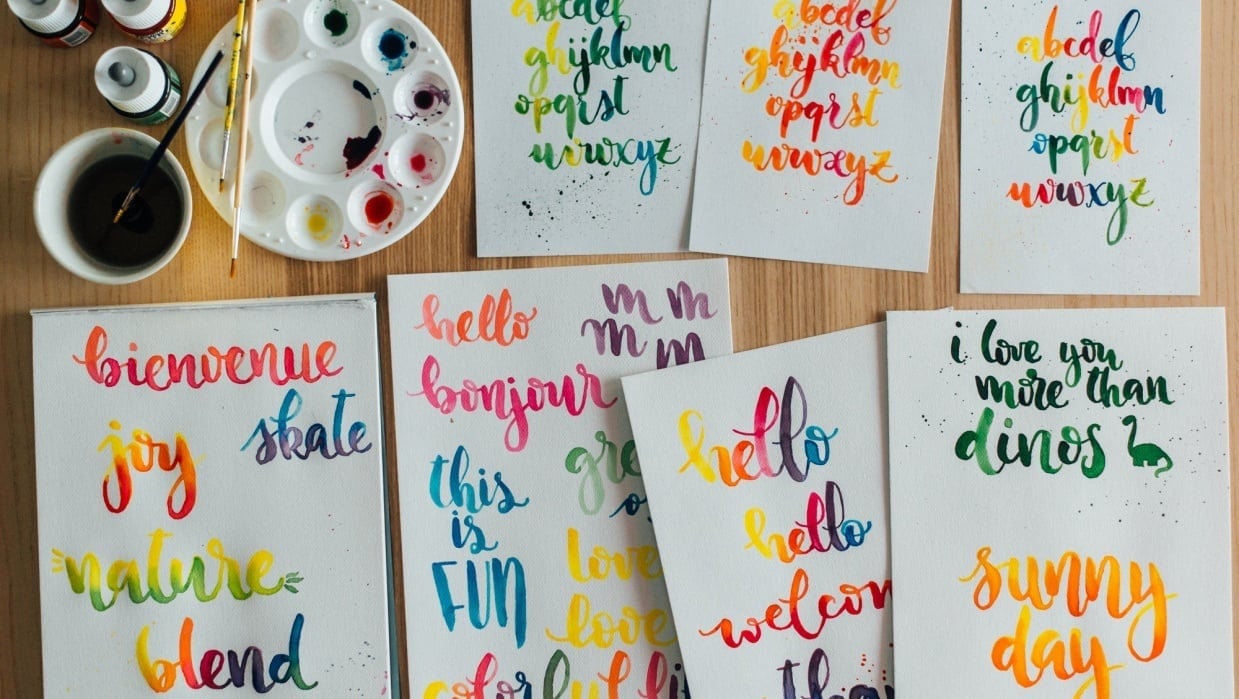 abcdef
ghijklmn
opqrst
uvwxyz
abcdef
ghijklmn
opqrst
uvwxyz
abcdef
ghijklmn
opqrst
uvwxyz
bienvenue
joy
skate
nature
blend
hello
m m
m m
bonjour
this
is
FUN
love
love
hello
hello
i love you
more than
dinos
sunny
day